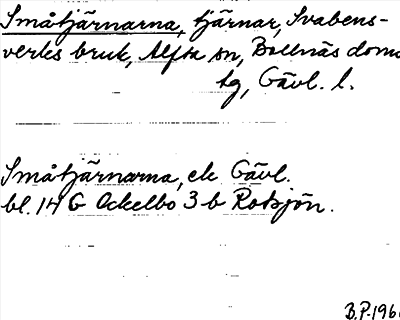 Småtjärnarna, tjärnar, Svabens-
verks bruk, Alfta sn, Bollnäs doms
tg, Gävl. l.
Småtjärnarna, ek Gävl.
bl. 14 G Ockelbo 3 b Rotsjön.
B.P. 196